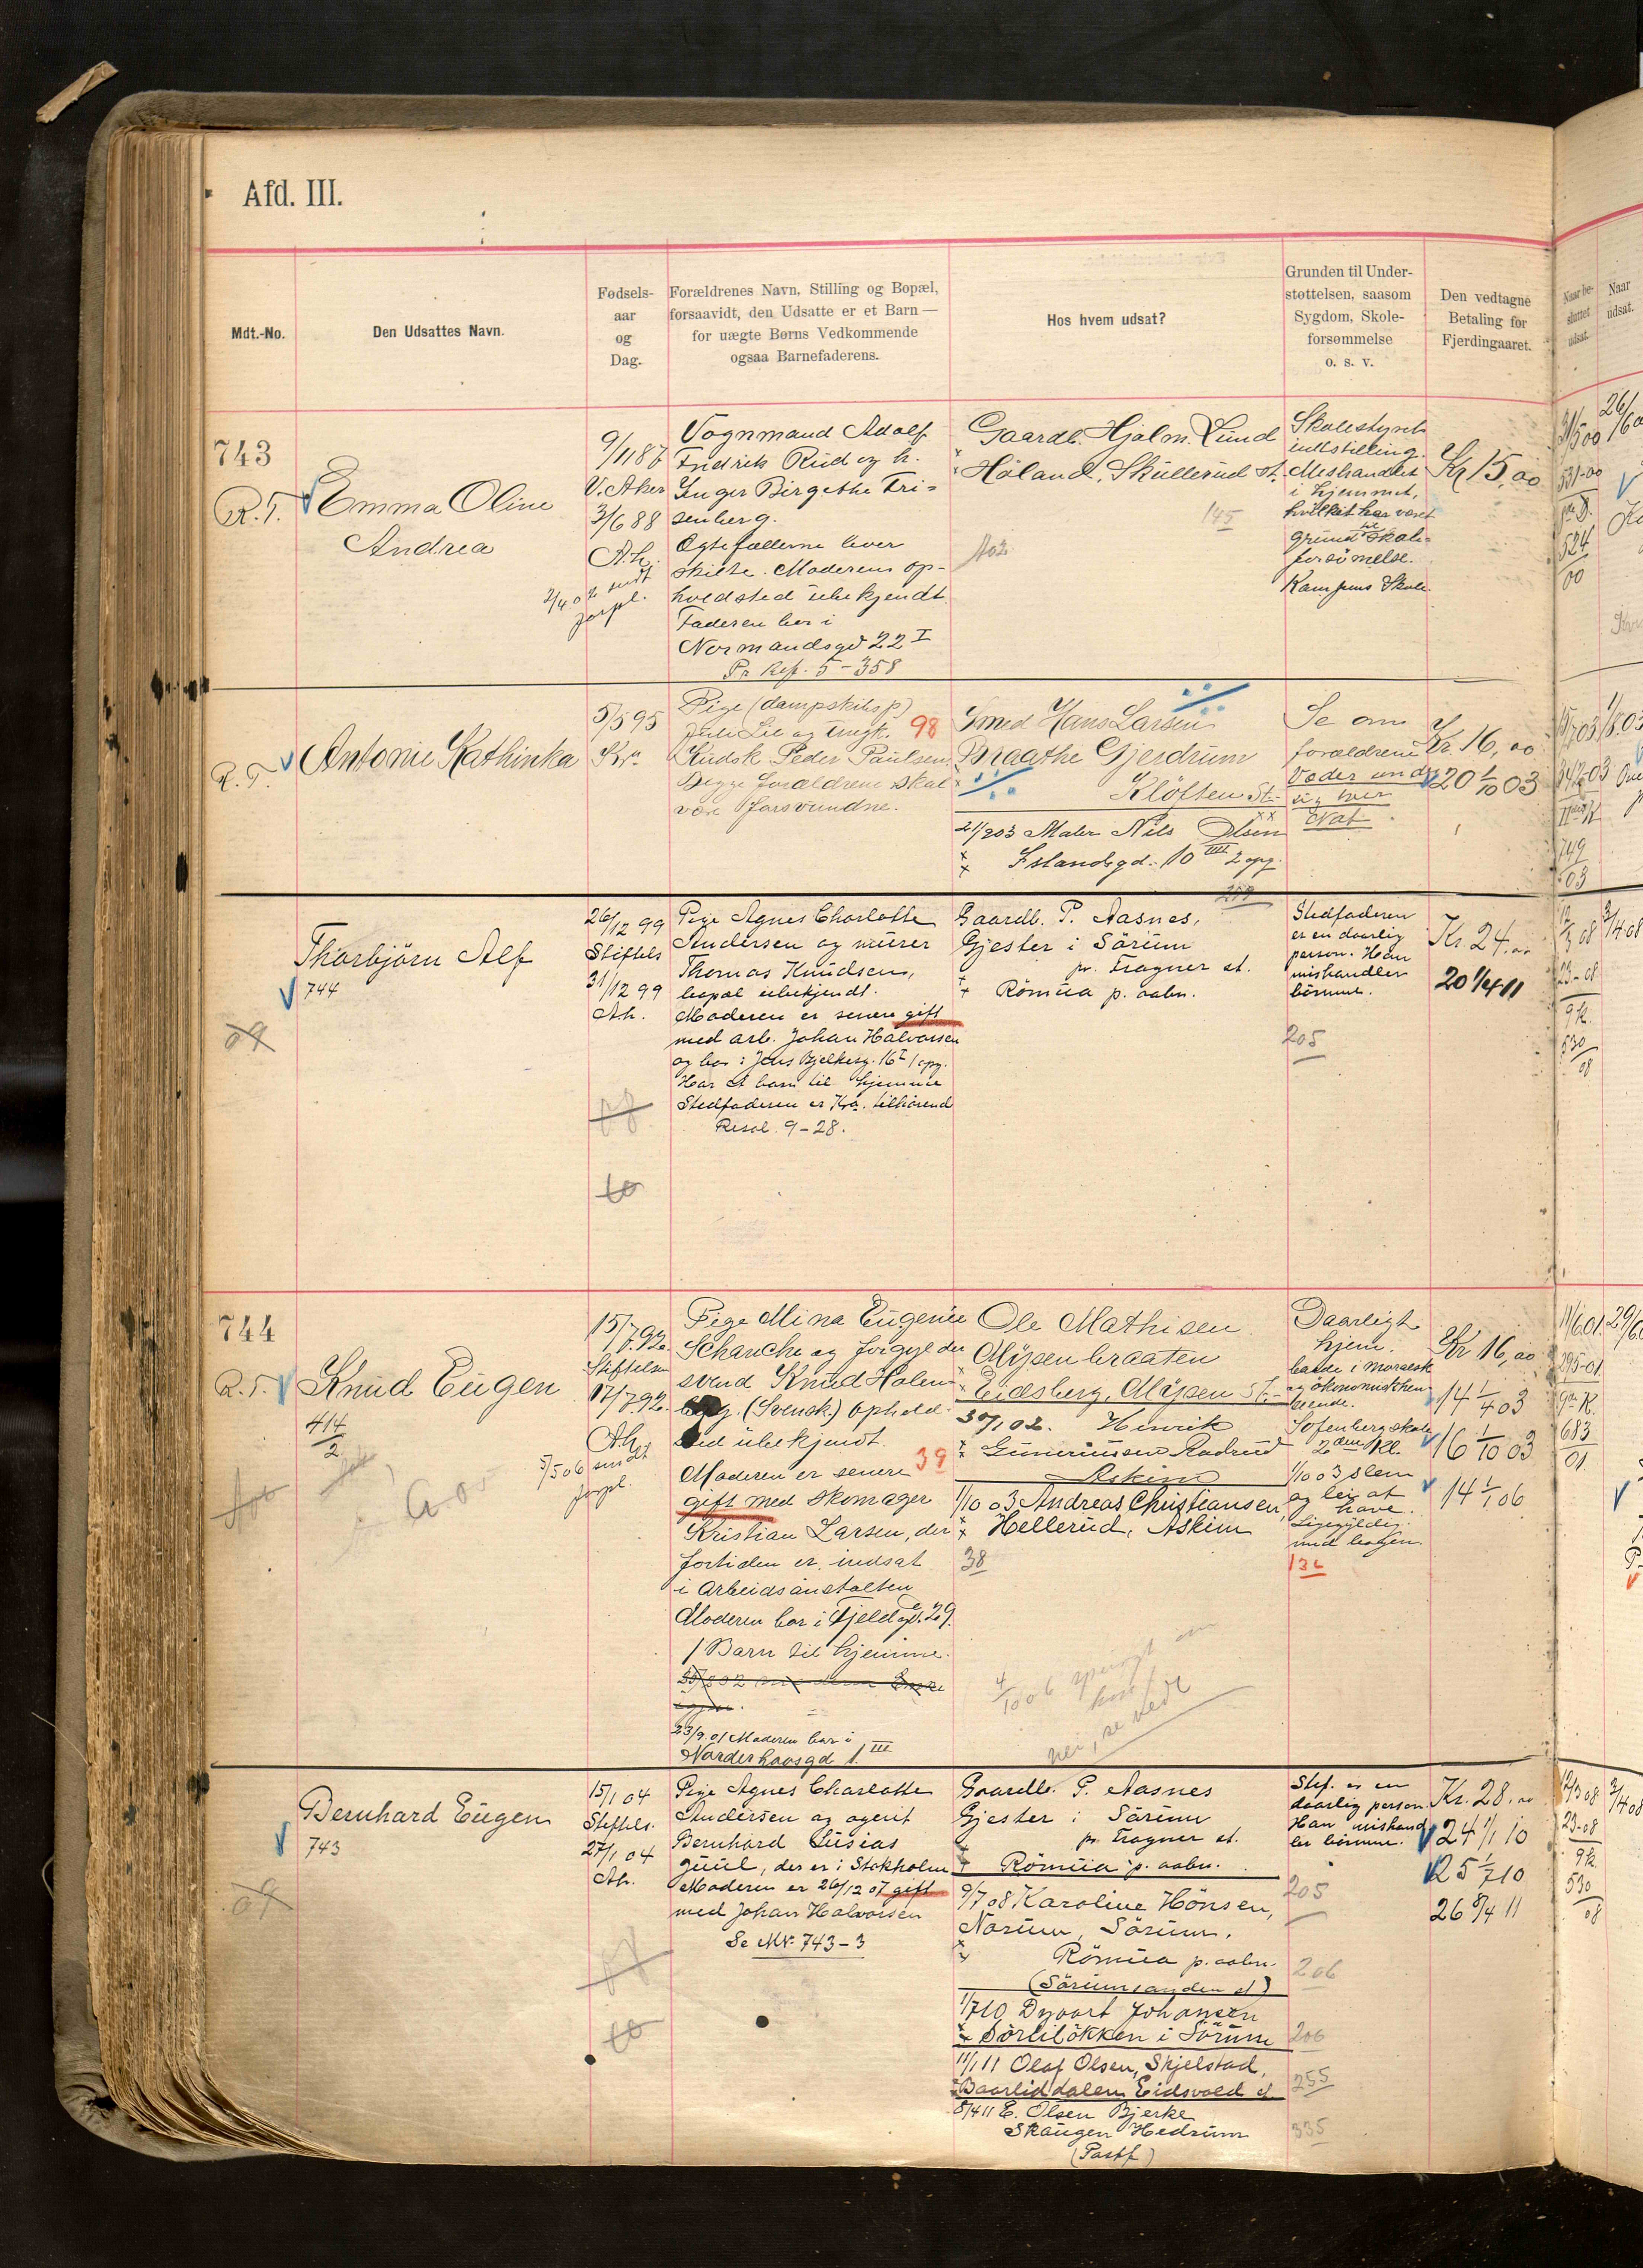 Afd. III.
Mdt.-No.
Den Udsattes Navn.
Fødsels-
aar
og
Dag.
Forældrenes Navn, Stilling og Bopæl,
forsaavidt, den Udsatte er et Barn —
for uægte Børns Vedkommende
ogsaa Barnefaderens.
Hos hvem udsat?
Grunden til Under-
støttelsen, saasom
Sygdom, Skole-
forsømmelse
o. s. v.
Den vedtagne
Betaling for
Fjerdingaaret.
Naar be-
sluttet
udsat.
Naar
udsat.
743
R. T.
Emma Oline
Andrea
9/11 87
V. Aker
3/6 88
A.k.
Vognmand Adolf
Fredrik Rud og h.
Inger Birgethe Fri-
senberg.
Ægtefællerne lever
skilte. Moderens op-
holdsted ubekjendt.
Faderen bor i
Normandsgd 22 I
Pr. Ref. 5-358
Gaardb. Hjalm. Lund
Høland, Skullerud st.
145
Skolestyrets
indstilling.
Mishandlet
i hjemmet,
hvilket har været
grund til skole-
forsømmelse.
Kampens Skole.
Kr 15,00
R. T.
Antonie Kathinka
5/5 95
Kr.a
Pige (dampskibsp)
Julie Lie og ungk. 98
Kudsk Peder Paulsen
Begge forældrene skal
være forsvundne.
Smed Hans Larsen
Braathe Gjerdrum
Kløften St.
21/2 03 Maler Nils Olsen
Islandsgd. 10 IIII 2 opg.
Se om
forældrene
Kr. 16,00
20 1/10 03
Thorbjörn Alf
744
26/12 99
Stiftels
31/12 99
A.k.
Pige Agnes Charlotte
Andersen og murer
Thomas Knudsen,
bopæl ubekjendt.
Moderen er senere gift
med arb. Johan Halvorsen
og bor i Jens Bjelkesg. 16 I 1 opg.
Har et barn til hjemme
Stedfaderen er Kra. tilhørend
Resol. 9-28.
Gaardb. P. Aasnes,
Gjester i Sörum
pr. Frogner st.
Römua p. aabn.
Stedfaderen
er en daarlig
person. Han
mishandler
börnene.
205
Kr 24,00
20 1/4 11
744
R. T.
Knud Eugen
414
2
15/7 92
Stiftelsen
17/7 92
A.k.
5/5 06 sendt
forpl.
Pige Mina Eugenie
Schanche og forgylder
svend Knud Holem-
(Svensk) ophold-
sted ubekjendt.
Moderen er senere 39
gift med skomager
Kristian Larsen, der
fortiden er indsat
i Arbeidsanstalten
Moderen bor i Fjeldgd. 29.
1 Barn til hjemme.
23/9 01 Moderen bor i
Norderhovsgd 1 III
Ole Mathisen
Mysenbraaten
Eidsberg, Mysen St.
Henrik
Gunerussen Radrud
Askim
1/10 03 Andreas Christiansen,
Hellerud, Askim
38
4/10 06 spurgt om
nei, se vedl
Daarligt
hjem.
baade i moralsk
og økonomisk hen-
seende.
Sofienberg skole
2den Kl.
1/10 03 slem
og lei at
have.
Ligegyldig
med bøgen.
136
Kr 16,00
14 1/4 03
16 1/10 03
14 1/1 06
Bernhard Eugen
743
15/1 04
Stiftels.
27/1 04
A.k.
Pige Agnes Charlotte
Andersen og agent
Bernhard Lusias
Juul, der er i Stokholm
Moderen er 26/12 07 gift
med Johan Halvorsen
Se Mr. 743-3
Gaardb. P. Aasnes
Gjester i Sörum
pr. Frogner st.
Römua p. aabn.
9/7 08 Karoline Hönsen,
Norum, Sörum.
Römua p. aabn.
(Sörumsanden st)
1/7 10 Dyvart Johansen
Sörlilökken i Sörum
11/1 11 Olaf Olsen, Skjelstad,
Baarliddalen Eidsvold st.
8/4 11 E. Olsen Bjerke
Skaugen Hedrum
Stef. er en
daarlig person.
Han mishand
ler börnene.
205
206
206
255
335
Kr. 28,00
24 1/1 10
25 1/7 10
26 8/4 11